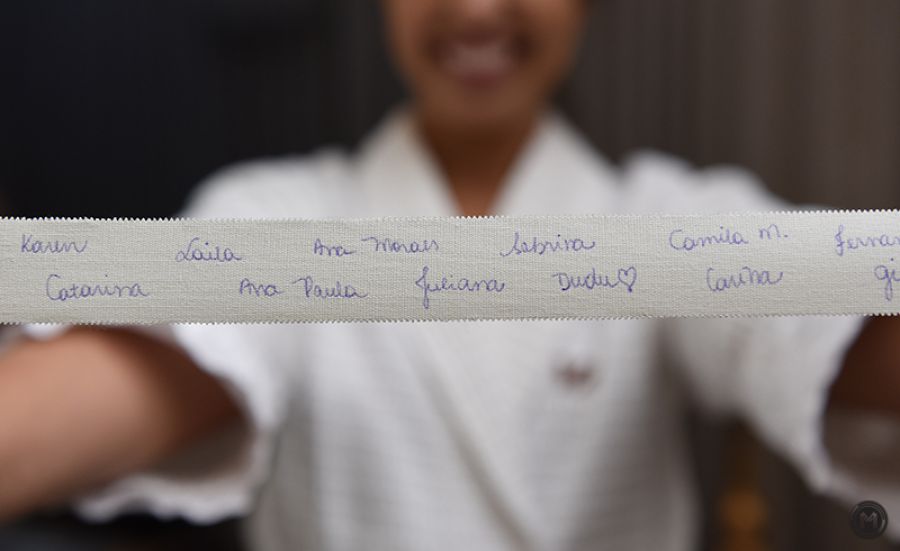 Karen Laila Ana Moraes Sabrina Camila M. Fernan
Catarina Ana Paula Juliana Dudu♡ Carina gi
M